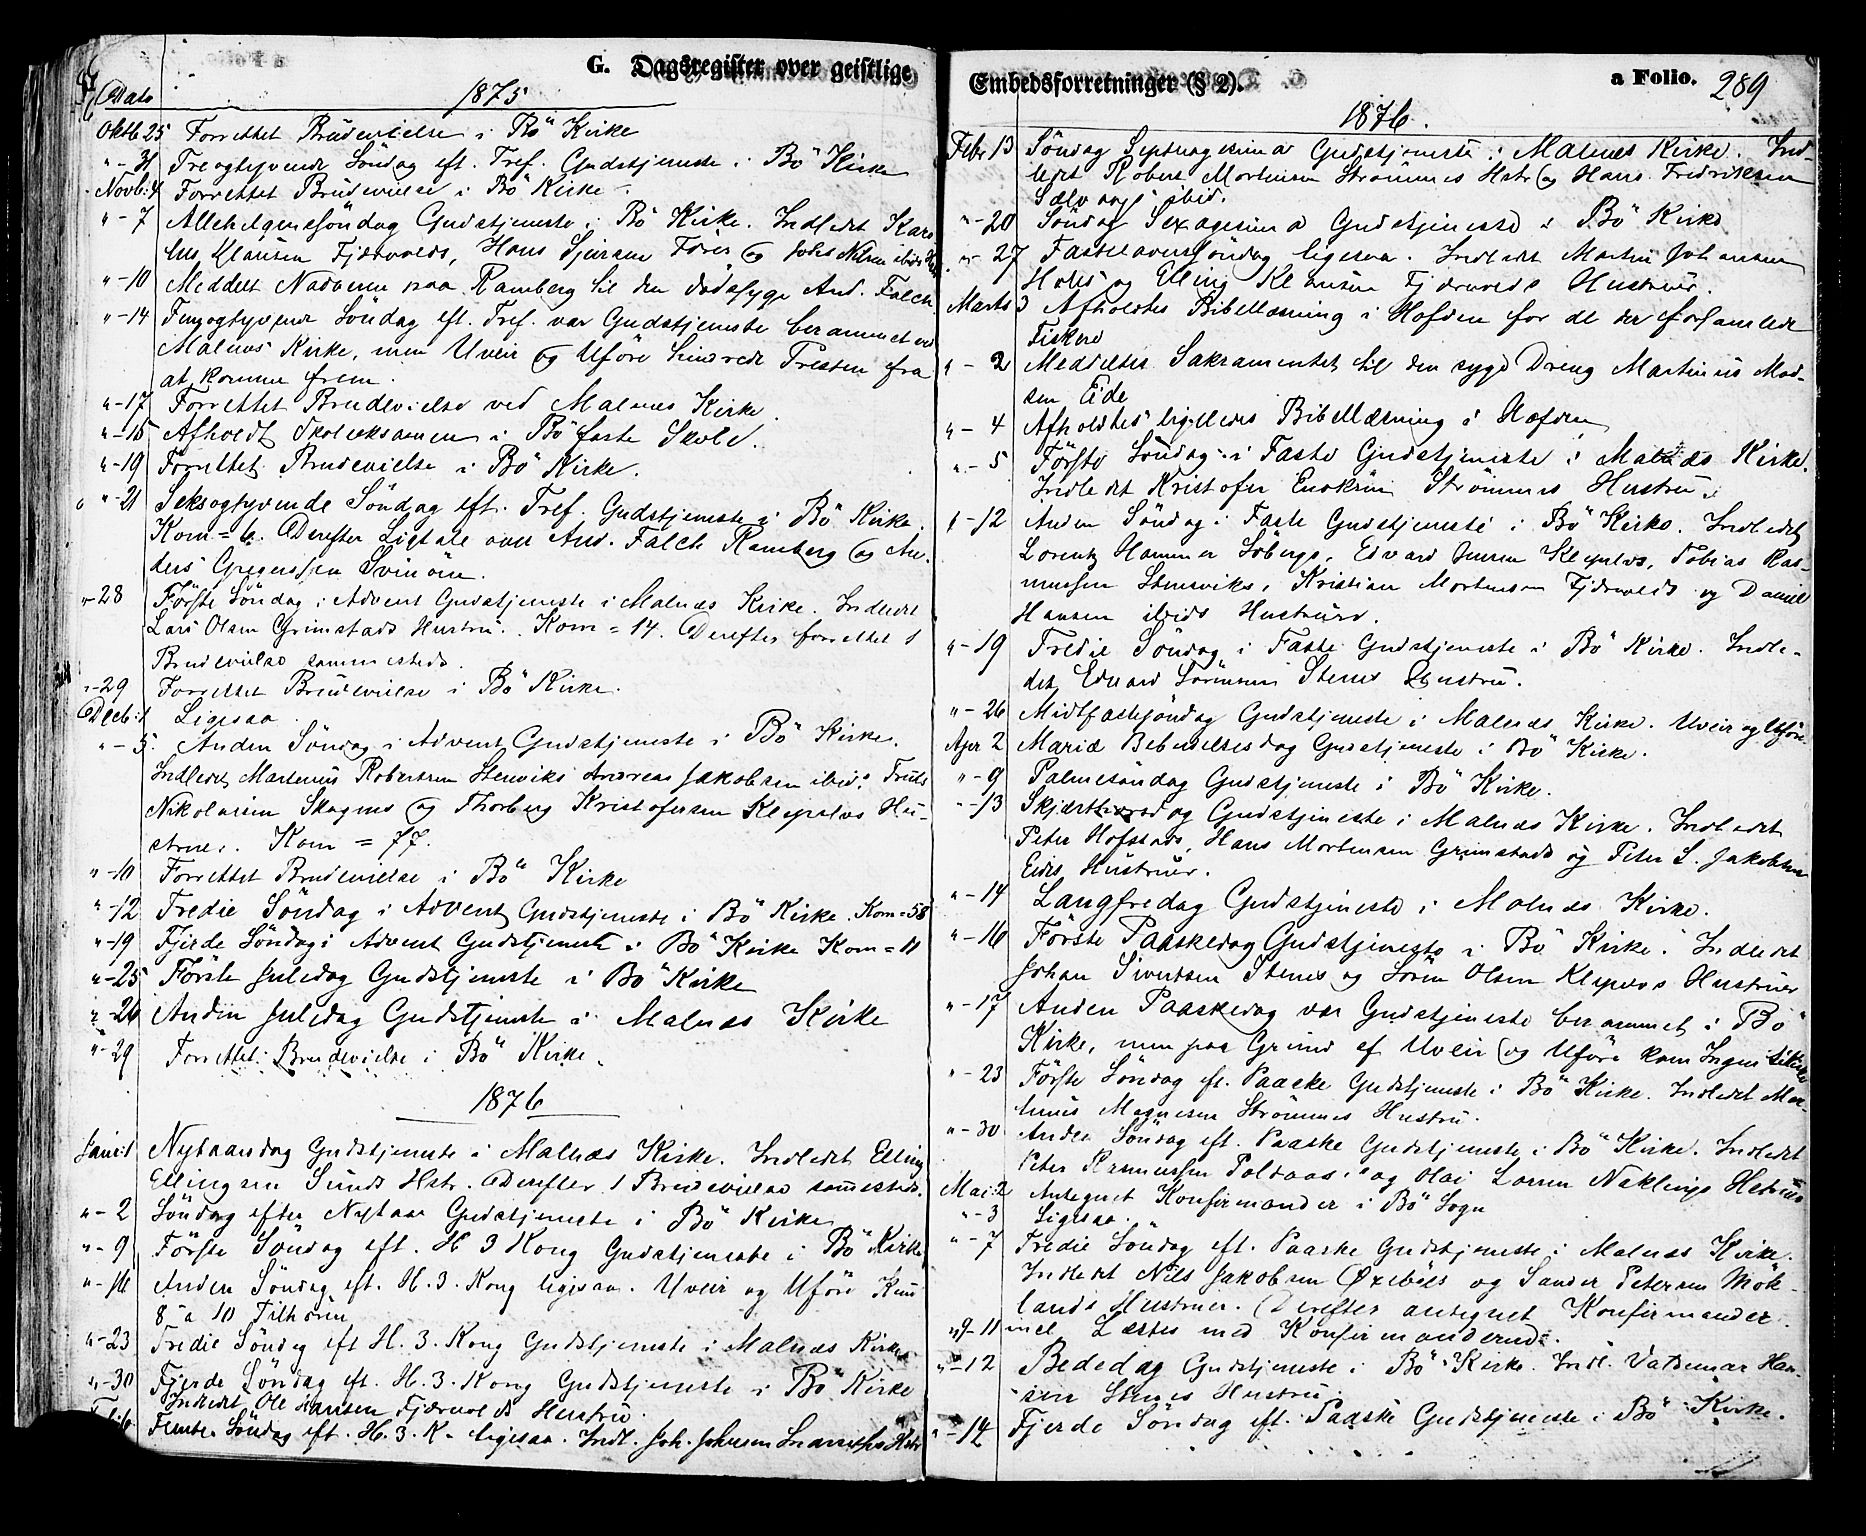 G. Dagsregister over geistlige
Dato 1875
Oktb 25 Forrettet Brudevielse i Bö Kirke
" - 31 Treogtyvende Söndag eft. Tref. Gudstjeneste i Bö Kirke
Novb: 4 Forrettet Brudevielse i Bö Kirke
" - 7 Allehelgenssöndag Gudstjeneste i Bö Kirke. Indledt Karo
lus Klausen Fjærvolds, Hans Sjursen Föres og
" - 10 Meddelt Nadveren paa Ramberg til den dödssyge And. Falch
" - 14 Femogtyvende Söndag eft. Tref. var Gudstjeneste berammet ved
Malnæs Kirke, men Uveir og Uföre hindrede Presten fra
at komme frem.
" - 17 Forrettet Brudevielse ved Malnæs Kirke.
" - 18 Afholdt Skoleeksamen i Bö faste Skole.
" - 19 Forrettet Brudevielse i Bö Kirke.
" - 21 Seksogtyvende Söndag eft. Tref. Gudstjeneste i Bö Kirke.
Kom = 6. Derefter Ligtale over And. Falch Ramberg og An-
ders Gregerssen Svinöen.
" - 28 Förste Söndag i Advent Gudstjeneste i Malnæs Kirke. Indledt
Lars Olsen Grimstads Hustru. Kom = 14. Derefter forrettet 1
Brudevielse sammesteds.
" - 29 Forrettet Brudevielse i Bö Kirke.
Decb: 1 Ligesaa.
" - 5 Anden Söndag i Advent Gudstjeneste i Bö Kirke.
Indledt Martenus Robertsen Stensviks Andreas Jakobsen ibid:
Nikolaisen Skagens og Thorberg Kristofersen Klepolvs Hu-
struer. Kom = 77.
" - 10 Forrettet Brudevielse i Bö Kirke
" - 12 Tredie Söndag i Advent Gudstjeneste i Bö Kirke. Kom = 58
" - 19 Fjerde Söndag i Advent Gudstjeneste i Bö Kirke Kom = 11
" - 25 Förste Juledag Gudstjeneste i Bö Kirke
" - 26 Anden Juledag Gudstjeneste i Malnæs Kirke
" - 29 Forrettet Brudevielse i Bö Kirke.
1876
Janr: 1 Nytaarsdag Gudstjeneste i Malnæs Kirke. Indledt Elling
Ellingsen Sunds Hstr. Derefter 1 Brudevielse sammesteds.
" - 2 Söndag efter Nytaar Gudstjeneste i Bö Kirke
" - 9 Förste Söndag eft. H 3 Kong Gudstjeneste i Bö Kirke
" - 16 Anden Söndag eft. H. 3. Kong ligesaa. Uveir og Uföre Kun
8 a 10 Tilhörere
" - 23 Tredie Söndag eft H. 3. Kong Gudstjeneste i Malnæs Kirke
" - 30 Fjerde Söndag eft. H. 3. Kong Gudstjeneste i Bö Kirke
Indledt Ole Hansen Fjærvolds Hustru.
Feb: 6 Femte Söndag eft. H. 3. K. ligesaa. Indl. Joh. Johnsen Hstr
Embedsforretninger (§ 2). a Folio. 289
1876.
Febr 13 Söndag Septuagesima Gudstjeneste i Malnæs Kirke. Ind-
ledt Robert Mortensen Strömmes Hstr og Hans Fredriksen
ibid.
" - 20 Söndag Sexagesima Gudstjeneste i Bö Kirke
" - 27 Fastelavnssöndag ligesaa. Indledt Martin Johansen
Hovs og Elling Klausen Fjærvolds Hustruer.
Marts 3 Afholdtes Bibellæsning i Hofden for de der forsamlede
Fiskere
" - 2 Meddeltes Sakramentet til den syge Dreng Martinus Mad-
sen Eide
" - 4 Afholdtes ligeledes Bibellæsning i Hofden
" - 5 Förste Söndag i Faste Gudstjeneste i Malnæs Kirke.
Indledt Kristofer Enoksen Strömmes Hustru.
" - 12 Anden Söndag i Faste Gudstjeneste i Bö Kirke. Indledt
Lorentz Hammer Söbergs, Edvard Jensen Klepolvs, Tobias Ras-
mussen Stensviks, Kristian Mortensen Fjærvolds og Daniel
Hansen ibids Hustruer.
" - 19 Tredie Söndag i Faste Gudstjeneste i Bö Kirke. Indle-
det Edvard Sörensen Stenes Hustru.
" - 26 Midtfastesöndag Gudstjeneste i Malnæs Kirke. Uveir og Uföre
Apr 2 Mariæ Bebudelsesdag Gudstjeneste i Bö Kirke.
" - 9 Palmesöndag Gudstjeneste i Bö Kirke.
" - 13 Skjærthorsdag Gudstjeneste i Malnæs Kirke. Indledt
Peter Hofstads, Hans Mortensen Grimstads og Peter L. Jakobsen
Eides Hustruer.
" - 14 Langfredag Gudstjeneste i Malnæs Kirke.
" - 16 Förste Paaskedag Gudstjeneste i Bö Kirke. Indledt
Johan Sivertsen Stenes og Sören Olsen Klepolvs Hustruer
" - 17 Anden Paaskedag var Gudstjeneste berammet i Bö
Kirke, men paa Grund af Uveir og Uföre kom Ingen til Kirke
" - 23 Förste Söndag eft. Paaske Gudstjeneste i Bö Kirke. Indledt Mar-
tinus Magnesen Strömmes Hustru.
" - 30 Anden Söndag eft. Paaske Gudstjeneste i Bö Kirke. Indledt
Peter Rasmussen og Olai Larsen Nyklings Hstruer
Mai: 2 Antegnet Konfirmander i Bö Sogn
" - 3 Ligesaa.
" - 7 Tredie Söndag eft. Paaske Gudstjeneste i Malnæs Kirke.
Indledt Nils Jakobsen Øxebøes og Sander Petersen Mök-
lands Hustruer. Derefter antegnet Konfirmander.
" 9-11 incl. Læstes med Konfirmanderne.
" - 12 Bededag Gudstjeneste i Bö Kirke. Indl. Valdemar Han-
sen Stenes Hustru.
" - 14 Fjerde Söndag eft. Paaske Gudstjeneste i Bö Kirke.